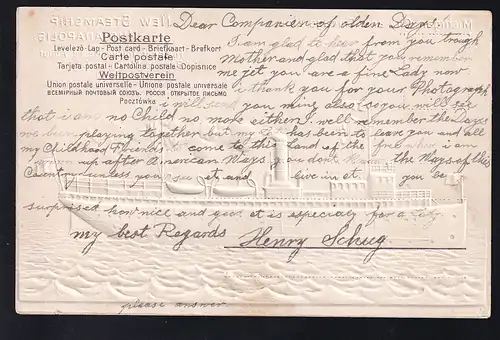 Dear Companion of olden Days.
Postkarte
I am glad to hear from you trough
Levelező-Lap - Post card - Briefkaart - Brefkort
Mother and glad that you remember
Carte postale
me yet you are a fine Lady now
Tarjeta postal - Cartolina postale - Dopisnice
Weltpostverein
i thank you for your Photograph
Union postale universelle - Unione postale universale
ВСЕМІРНЫЙ ПОЧТОВЫЙ СОЮЗЪ. РОССІЯ. ОТКРЫТОЕ ПИСЬМО
Pocztówka
i will send you mine also so you will see
that i am no Child no more either. i well remember the Days
we been playing together but my lot has been to leave you and all
my Childhood Friends to come to this Land of the free where i am
grown up after American Ways you dont know the Ways of this
Country unless you see it and live in it you be
surprised how nice and gut it is especialy for a
my best Regards Henry Schug
please answer